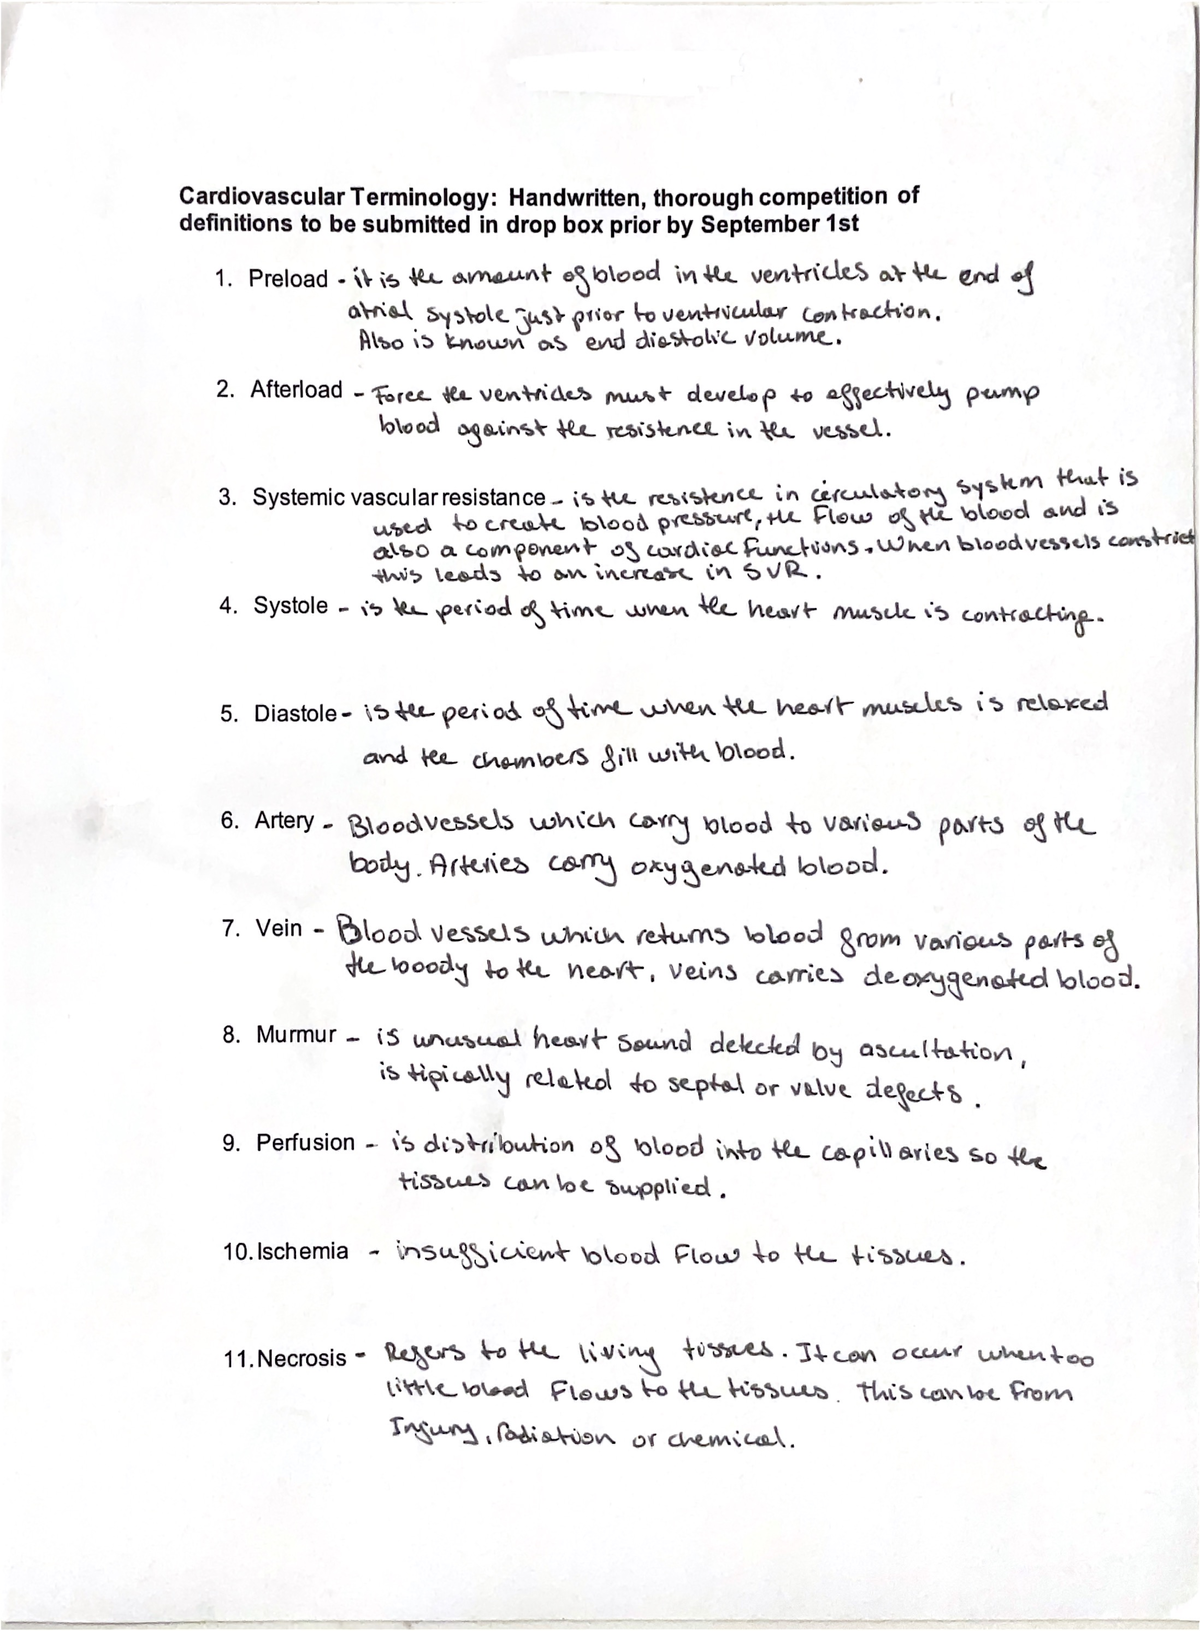 Cardiovascular Terminology: Handwritten, thorough competition of
definitions to be submitted in drop box prior by September 1st
1. Preload - it is the amount of blood in the ventricles at the end of
atrial systole just prior to ventricular contraction.
Also is known as end diastolic volume.
2. Afterload - Force the ventricles must develop to effectively pump
blood against the resistence in the vessel.
3. Systemic vascular resistance - is the resistence in circulatory system that is
used to create blood pressure, the Flow of the blood and is
also a component of cardiac functions. When blood vessels constrict
this leads to an increase in SVR.
4. Systole - is the period of time when the heart muscle is contracting.
5. Diastole - is the period of time when the heart muscles is relaxed
and the chambers fill with blood.
6. Artery - Blood vessels which carry blood to various parts of the
body. Arteries carry oxygenated blood.
7. Vein - Blood vessels which returns blood from various parts of
the boody to the heart, veins carries deoxygenated blood.
8. Murmur - is unusual heart sound detected by ascultation,
is tipically related to septal or valve defects.
9. Perfusion - is distribution of blood into the capillaries so the
tissues can be supplied.
10. Ischemia - insufficient blood Flow to the tissues.
11. Necrosis - Refers to the living tissues. It can occur when too
little blood Flows to the tissues. This can be From
Injury, Radiation or chemical.